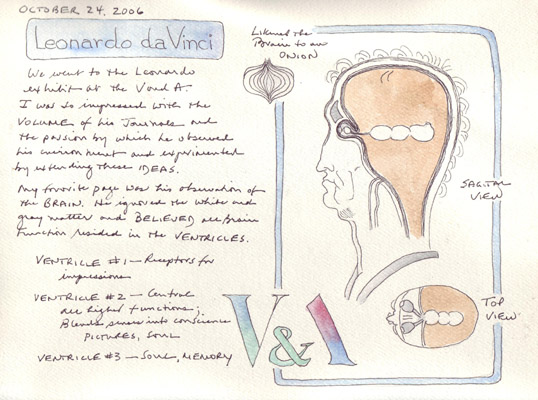 OCTOBER 24, 2006
Leonardo da Vinci
We went to the Leonardo
exhibit at the V and A.
I was so impressed with the
VOLUME of his Journals and
the passion by which he observed
his environment and experimented
by extending these IDEAS.
My favorite page was his observation of
the BRAIN. He ignored the white and
gray matter and BELIEVED all Brain
Function resided in the VENTRICLES.
VENTRICLE #1 — Receptors for
impressions
VENTRICLE #2 — Central
all higher functions;
Blends senses into conscience
PICTURES, SOUL
VENTRICLE #3 — SOUL, MEMORY
Likened the
Brain to an
ONION
SAGITAL
VIEW
TOP
VIEW
V&A